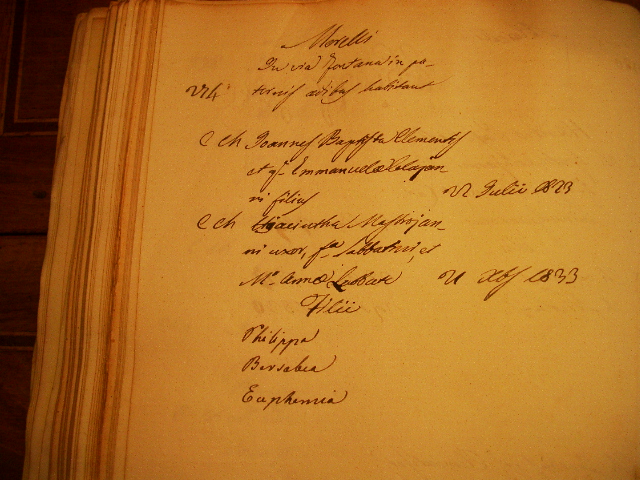 Morelli
In via Fontana in pa-
ternis ædibus habitant
C ch Joannes Baptista Clementis
et qm Emmanuelæ Colajan
ni filius 22 Julii 1823
C ch Hiacintha Mastrojan-
ni uxor, fa Sabbatini, et
Mæ Annæ Labbate 21 Xbs 1833
Filii
Philippa
Bersabea
Euphemia